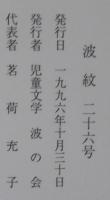 波紋 二十六号
発行日 一九九六年十月三十日
発行者 児童文学 波の会
代表者 茗荷充子